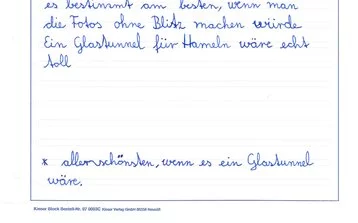 es bestimmt am besten, wenn man
die Fotos ohne Blitz machen würde
Ein Glastunnel für Hameln wäre echt
toll
* allerschönsten, wenn es ein Glastunnel
wäre.
Knauer Block Bestell-Nr. 07 0003C